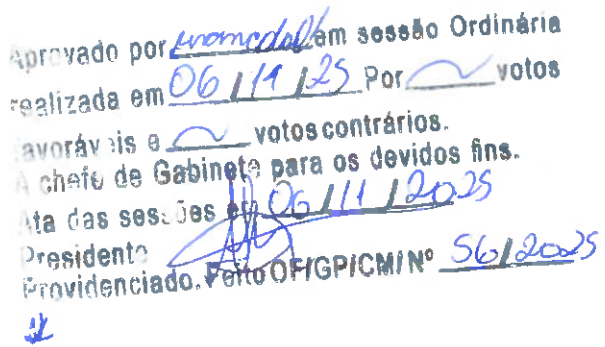 Aprovado por unanimidade em sessão Ordinária
realizada em 06/11/25 Por ~ votos
favoráveis e ~ votos contrários.
A chefe de Gabinete para os devidos fins.
Ata das sessões em 06/11/2025
Presidente
Providenciado. Feito OF/GP/CM/Nº 56/2025